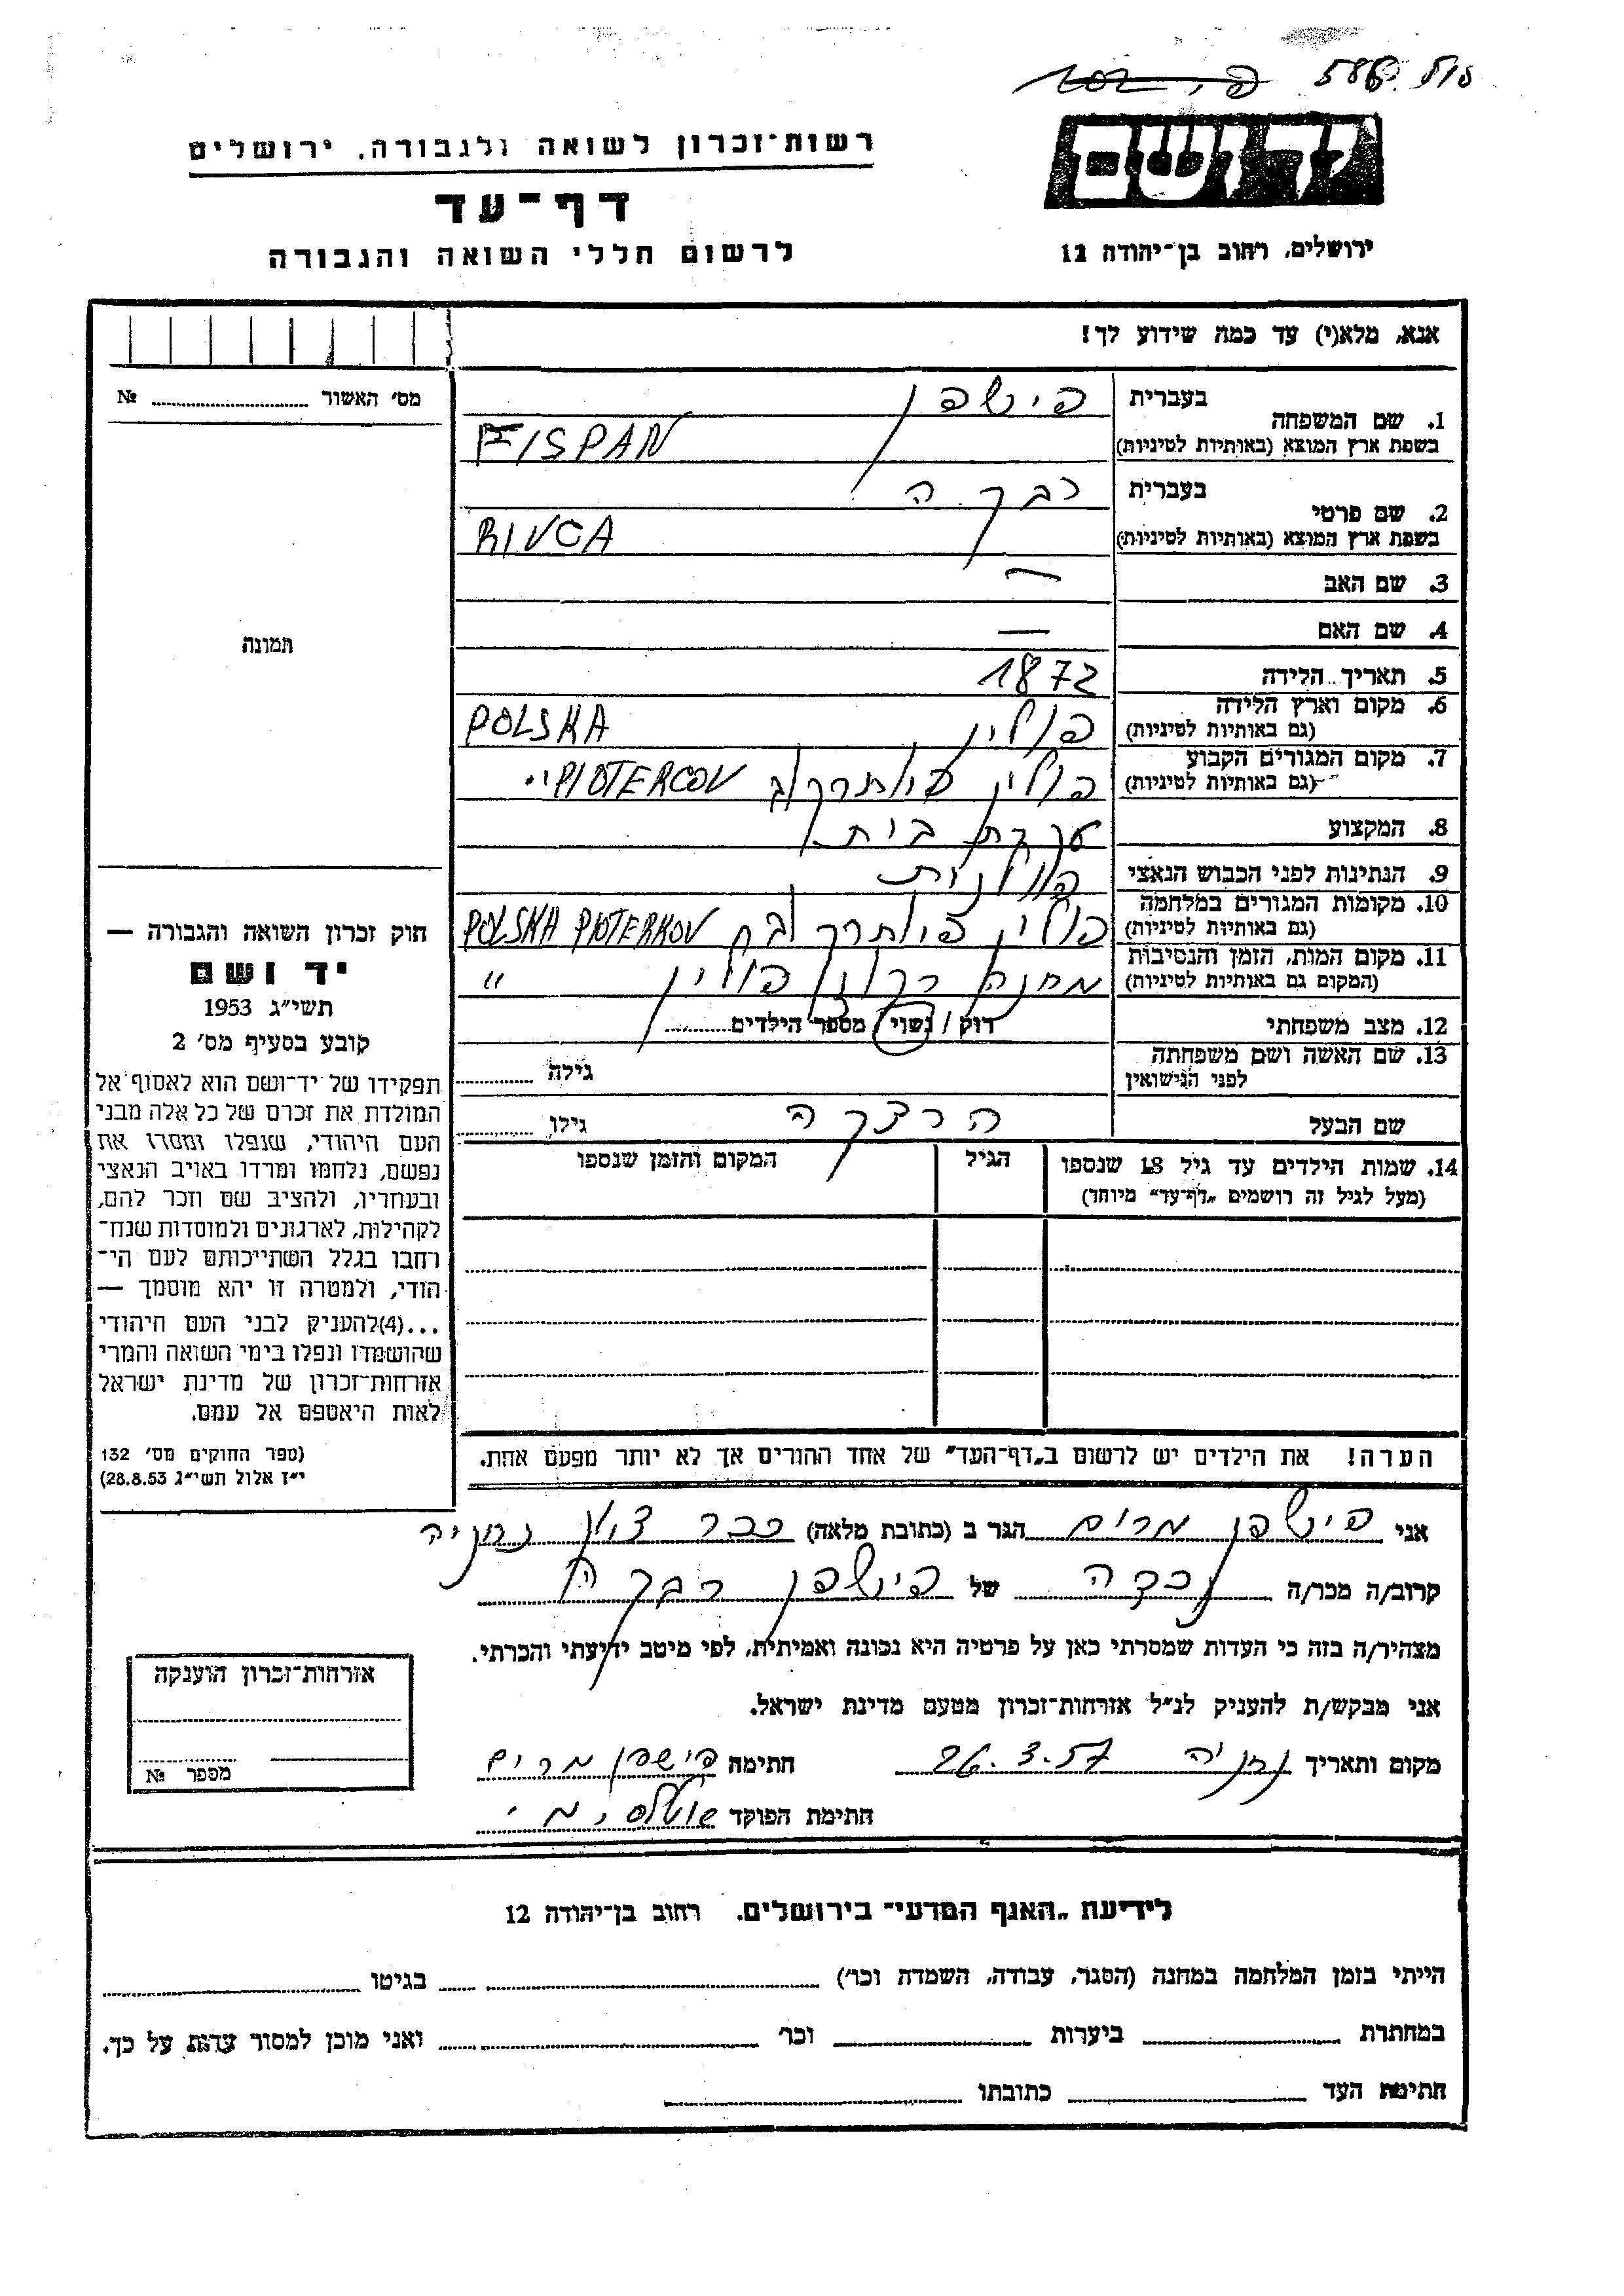 רשות־זכרון לשואה ולגבורה, ירושלים
דף־עד
לרשום חללי השואה והגבורה
יד ושם
ירושלים, רחוב בן־יהודה 12
אנא, מלא(י) עד כמה שידוע לך!
מס׳ האשור № 
1. שם המשפחה
בעברית פישפן
בשפת ארץ המוצא (באותיות לטיניות) FISPAN
2. שם פרטי
בעברית רבקה
בשפת ארץ המוצא (באותיות לטיניות) RIVCA
3. שם האב —
4. שם האם —
5. תאריך הלידה 1872
6. מקום וארץ הלידה
(גם באותיות לטיניות) פולין POLSKA
7. מקום המגורים הקבוע
(גם באותיות לטיניות) פולין פיותרקוב PIOTERCOV "
8. המקצוע עקרת בית
9. הנתינות לפני הכבוש הנאצי פולנית
10. מקומות המגורים במלחמה
(גם באותיות לטיניות) פולין פיותרקוב POLSKA PIOTERKOV
11. מקום המות, הזמן והנסיבות
(המקום גם באותיות לטיניות) מחנה פולין "
12. מצב משפחתי רוק / נשוי / מספר הילדים
13. שם האשה ושם משפחתה
לפני הנישואין גילה
שם הבעל הרצקה גילו
14. שמות הילדים עד גיל 18 שנספו הגיל המקום והזמן שנספו
(מעל לגיל זה רושמים „דף־עד״ מיוחד)
הערה! את הילדים יש לרשום ב„דף־העד״ של אחד ההורים אך לא יותר מפעם אחת.
תמונה
חוק זכרון השואה והגבורה —
יד ושם
תשי״ג 1953
קובע בסעיף מס׳ 2
תפקידו של יד־ושם הוא לאסוף אל
המולדת את זכרם של כל אלה מבני
העם היהודי, שנפלו ומסרו את
נפשם, נלחמו ומרדו באויב הנאצי
ובעוזריו, ולהציב שם וזכר להם,
לקהילות, לארגונים ולמוסדות שנח־
רחבו בגלל השתייכותם לעם הי־
הודי, ולמטרה זו יהא מוסמך —
...(4)להעניק לבני העם היהודי
שהושמדו ונפלו בימי השואה והמרי
אזרחות־זכרון של מדינת ישראל
לאות היאספם אל עמם.
(ספר החוקים מס׳ 132
י״ז אלול תשי״ג 28.8.53)
אני פישפן מרים הגר ב (כתובת מלאה) כפר נתניה
קרוב/ה מכר/ה נכדה של פישפן רבקה
מצהיר/ה בזה כי העדות שמסרתי כאן על פרטיה היא נכונה ואמיתית, לפי מיטב ידיעתי והכרתי.
אני מבקש/ת להעניק לנ״ל אזרחות־זכרון מטעם מדינת ישראל.
מקום ותאריך נתניה 26.3.57 חתימה פישפן מרים
חתימת הפוקד
אזרחות־זכרון הוענקה
מספר №
לידיעת „האגף המדעי״ בירושלים, רחוב בן־יהודה 12
הייתי בזמן המלחמה במחנה (הסגר, עבודה, השמדה וכו׳) בגיטו
במחתרת ביערות וכו׳ ואני מוכן למסור עדות על כך.
חתימת העד כתובתו